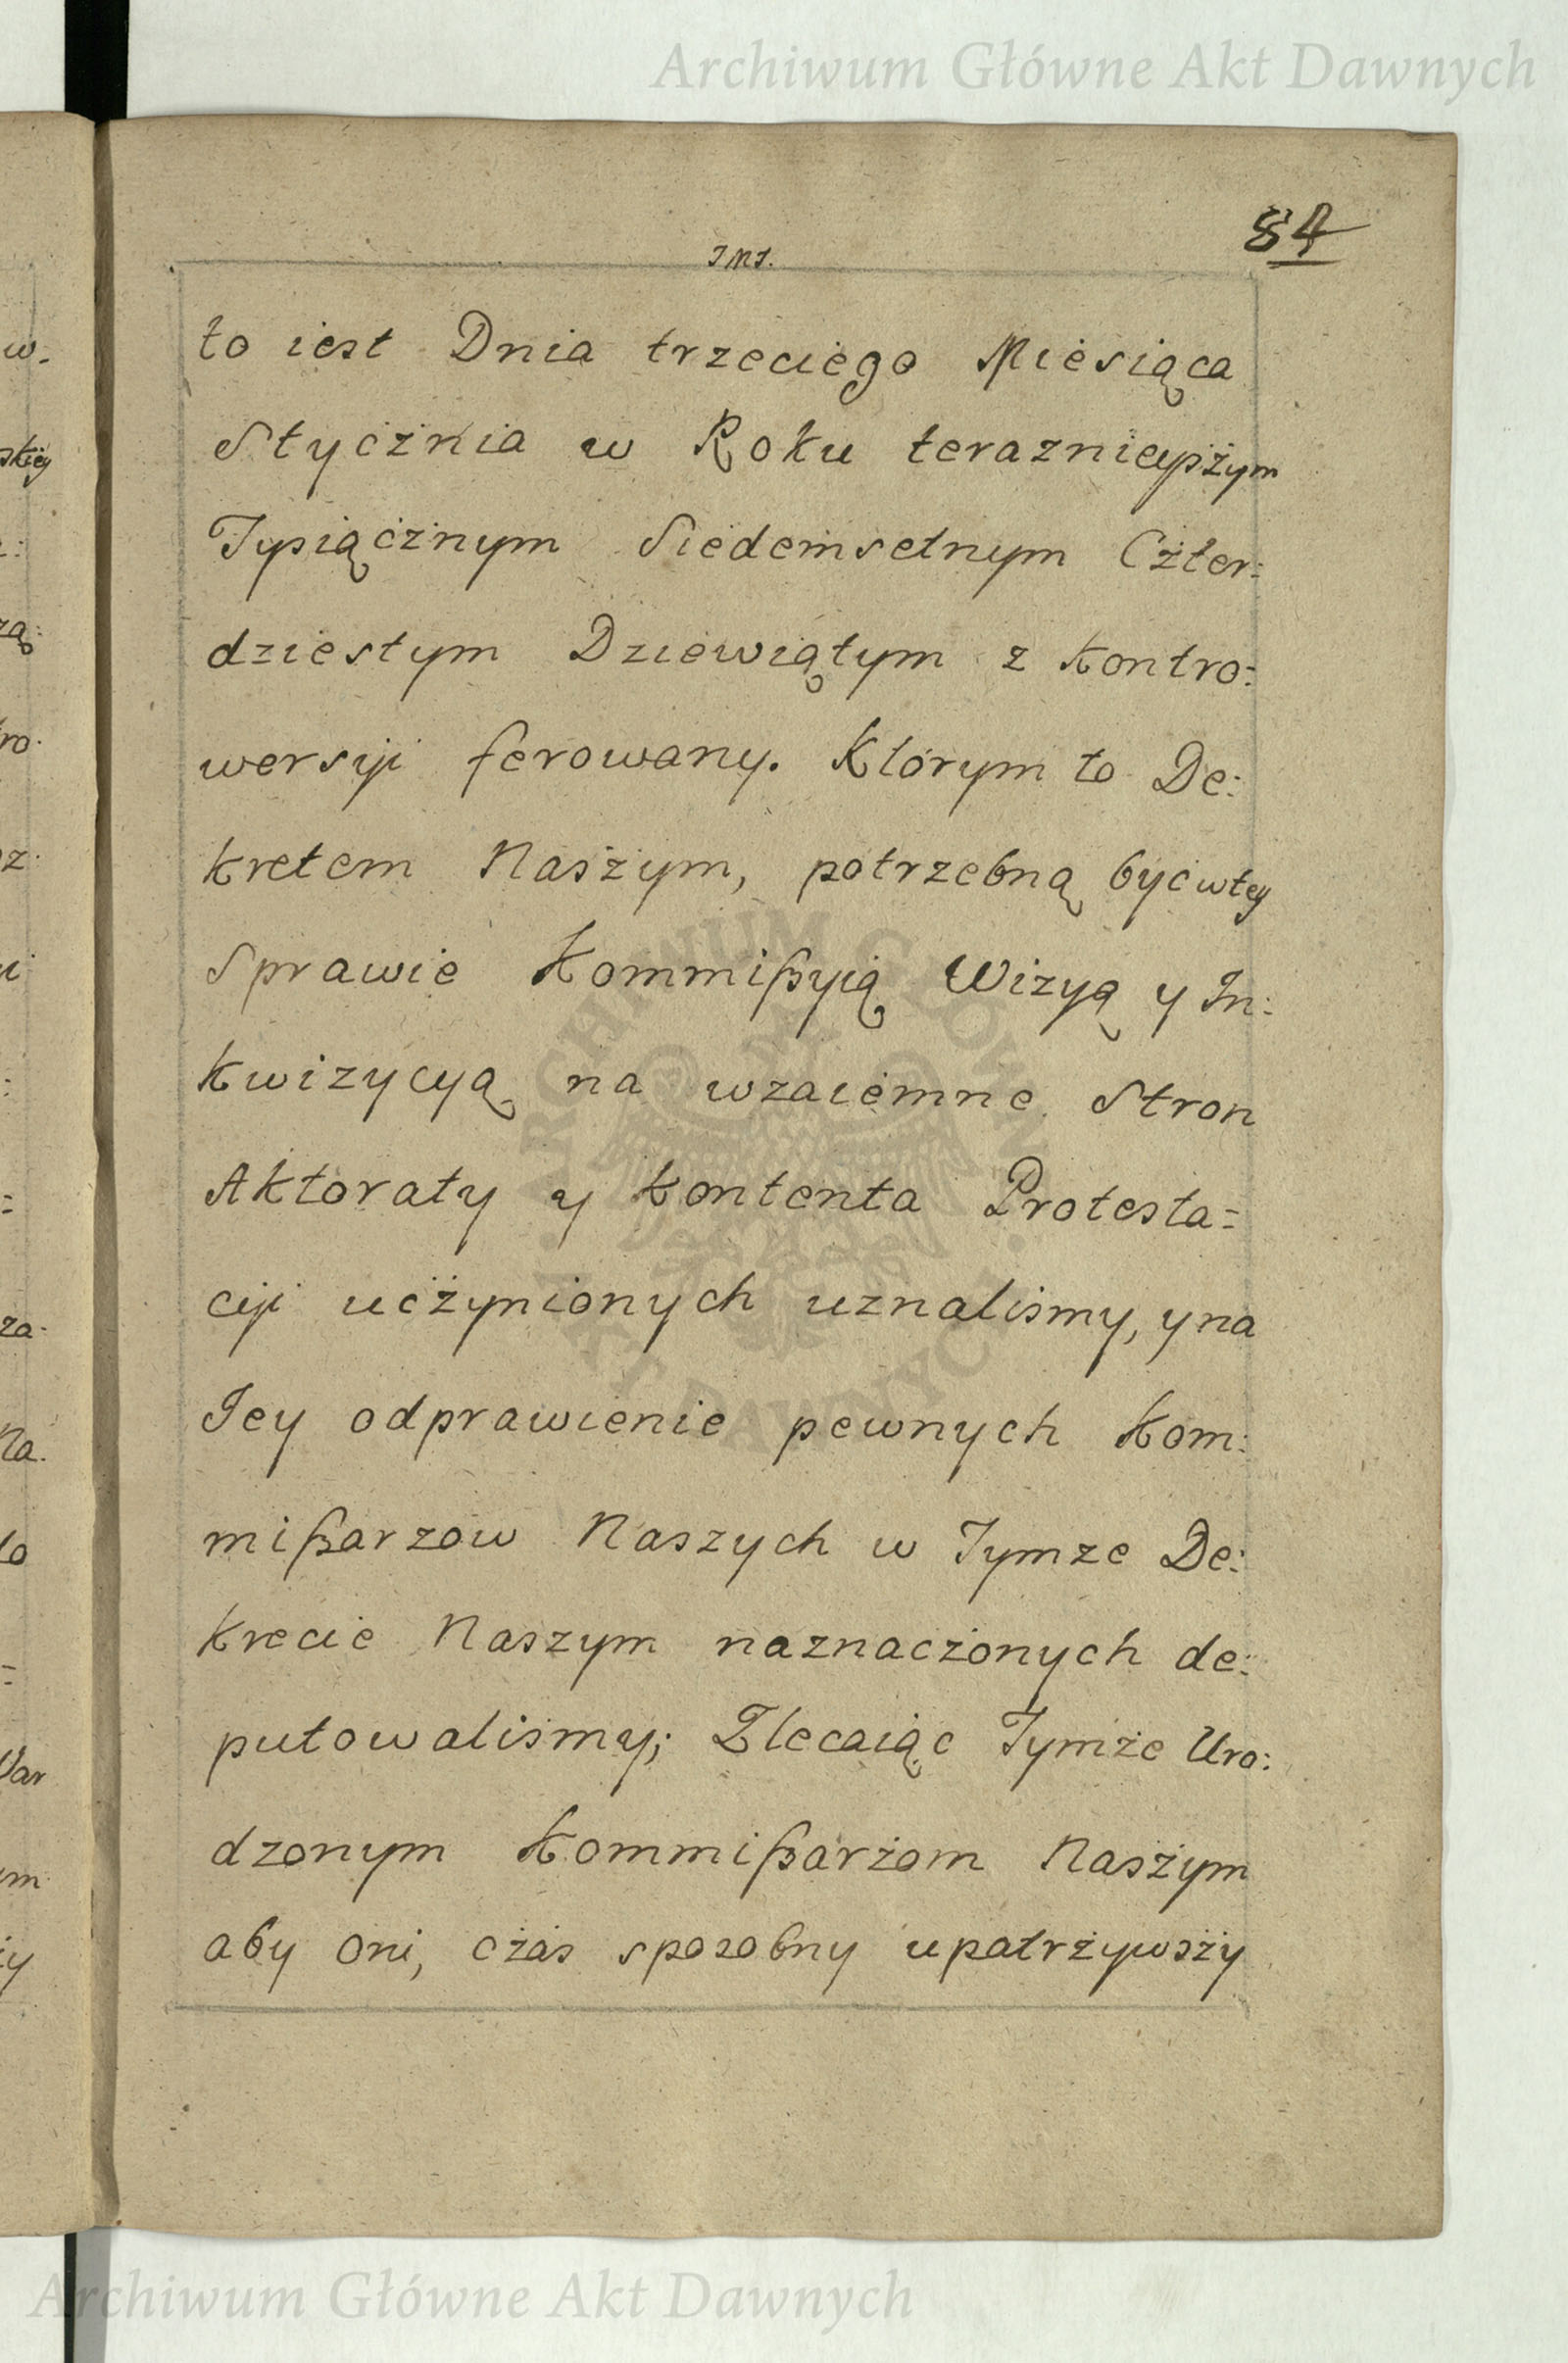 Archiwum Główne Akt Dawnych
84
JMJ.
to iest Dnia trzeciego Miesiąca
Stycżnia w Roku teraznieyszżym
Tysiącżnym Siedemsetnym Cżter:
dziestym Dziewiątym z Kontro:
wersyi ferowany. Ktorym to De:
kretem Naszżym, potrzebną być wtey
Sprawie Kommißyią Wizyą y In:
kwizycyą na wzaiemne Stron
Aktoraty y Kontenta Protesta=
cyi ucżynionych uznalismy, y na
Jey odprawienie pewnych Kom:
mißarzow Naszych w Tymze De:
krecie Naszym naznacżonych de:
putowalismy; Zlecaiąc Tymże Uro:
dzonym Kommißarżom Naszżym
aby oni, cżas sposobny upatrżywszży
ARCHIWUM GŁÓWNE AKT DAWNYCH
Archiwum Główne Akt Dawnych